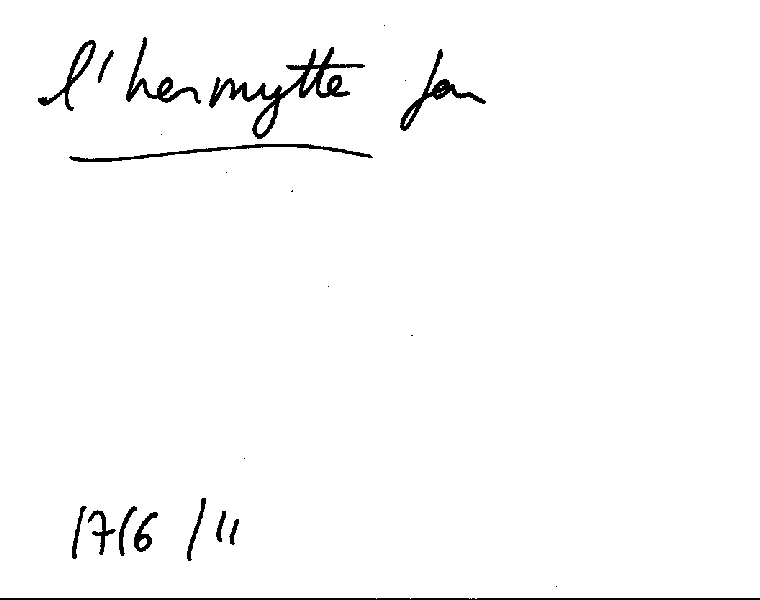 l'hermytte Jan
1716 / 11